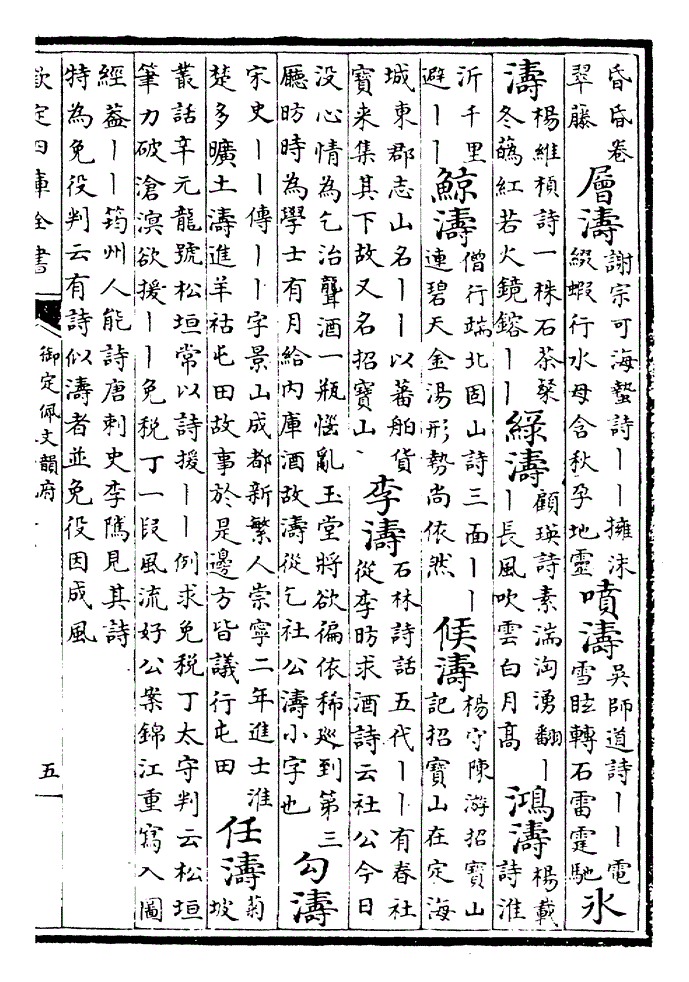 昏昏卷
翠藤
層濤
謝宗可海蟄詩丨丨擁沫
綴蝦行水母含秋孕地靈
噴濤
吳師道詩丨丨電
雪眩轉石雷霆馳
氷
濤
楊維楨詩一株石茶聚
冬蘤紅若火鏡鎔丨丨
綠濤
顧瑛詩素湍洶湧翻丨
丨長風吹雲白月高
鴻濤
楊載
詩淮
沂千里
避丨丨
鯨濤
僧行端北固山詩三面丨丨
連碧天金湯形勢尚依然
候濤
楊守陳游招寶山
記招寶山在定海
城東郡志山名丨丨以蕃舶貨
寶來集其下故又名招寶山
李濤
石林詩話五代丨丨有春社
從李昉求酒詩云社公今日
没心情為乞治聾酒一瓶惱亂玉堂將欲徧依稀廵到第三
廳昉時為學士有月給內庫酒故濤從乞社公濤小字也
勾濤
宋史丨丨傳丨丨字景山成都新繁人崇寧二年進士淮
楚多曠土濤進羊祜屯田故事於是邊方皆議行屯田
任濤
菊
坡
叢話辛元龍號松垣常以詩援丨丨例求免税丁太守判云松垣
筆力破滄溟欲援丨丨免税丁一段風流好公案錦江重寫入圖
經葢丨丨筠州人能詩唐刺史李隲見其詩
特為免役判云有詩似濤者並免役因成風
欽定四庫全書
御定佩文韻府
五